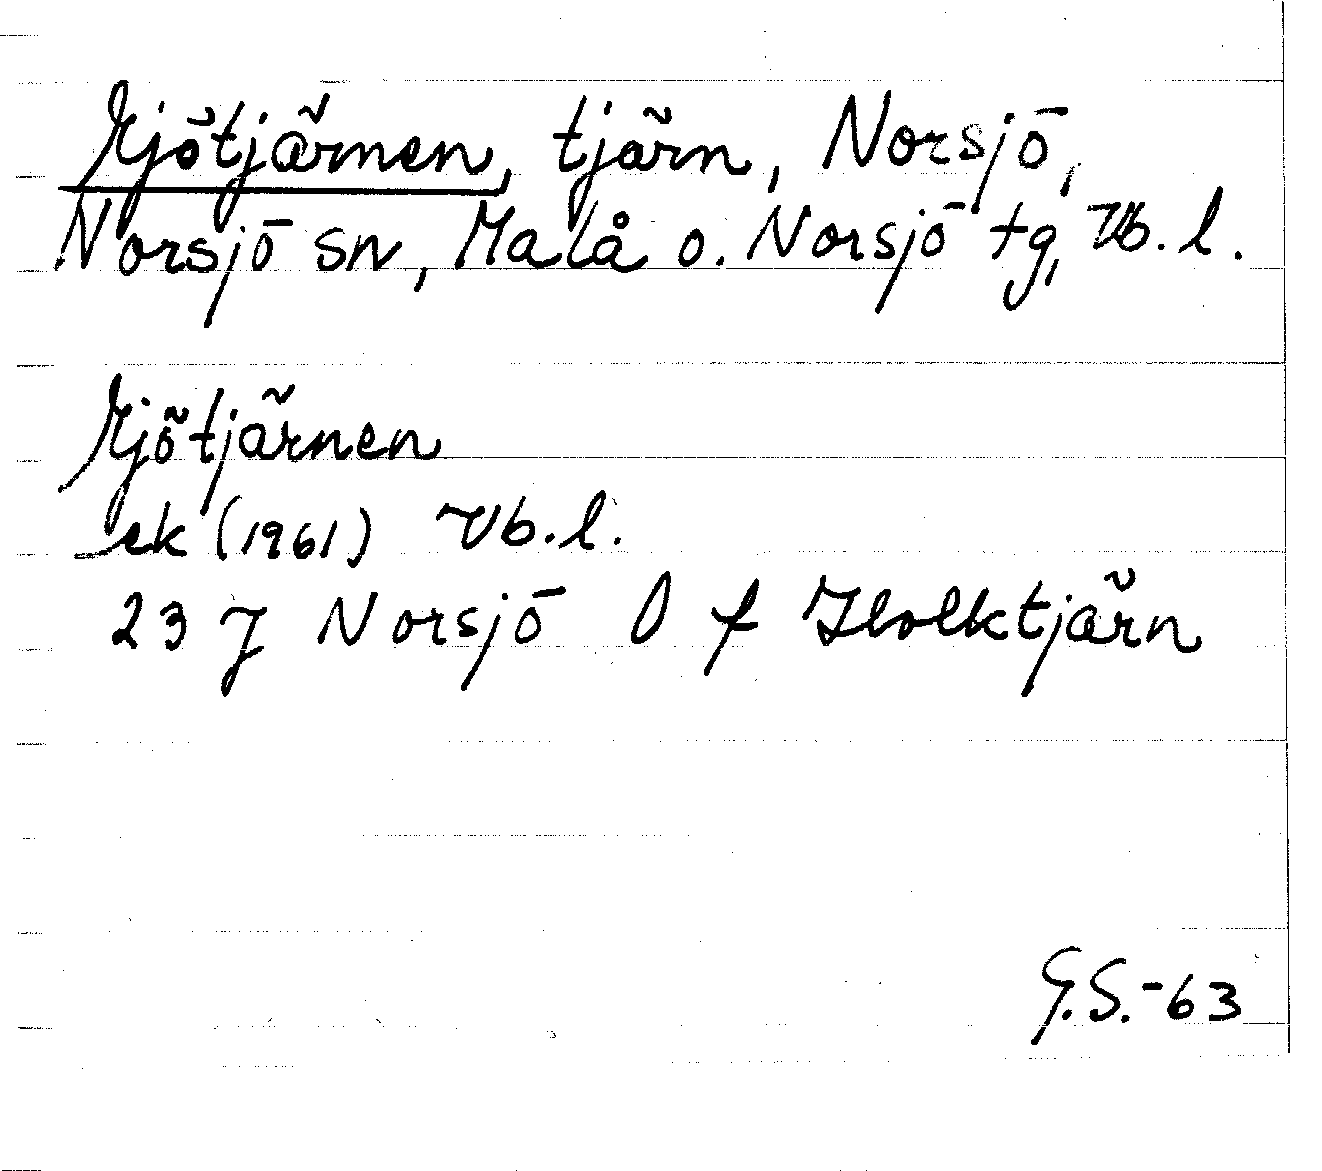 Mjötjärnen, tjärn, Norsjö,
Norsjö sn, Malå o. Norsjö tg, Vb. l.
Mjötjärnen
ek (1961) Vb. l.
23 J Norsjö O f Holktjärn
G.S.-63